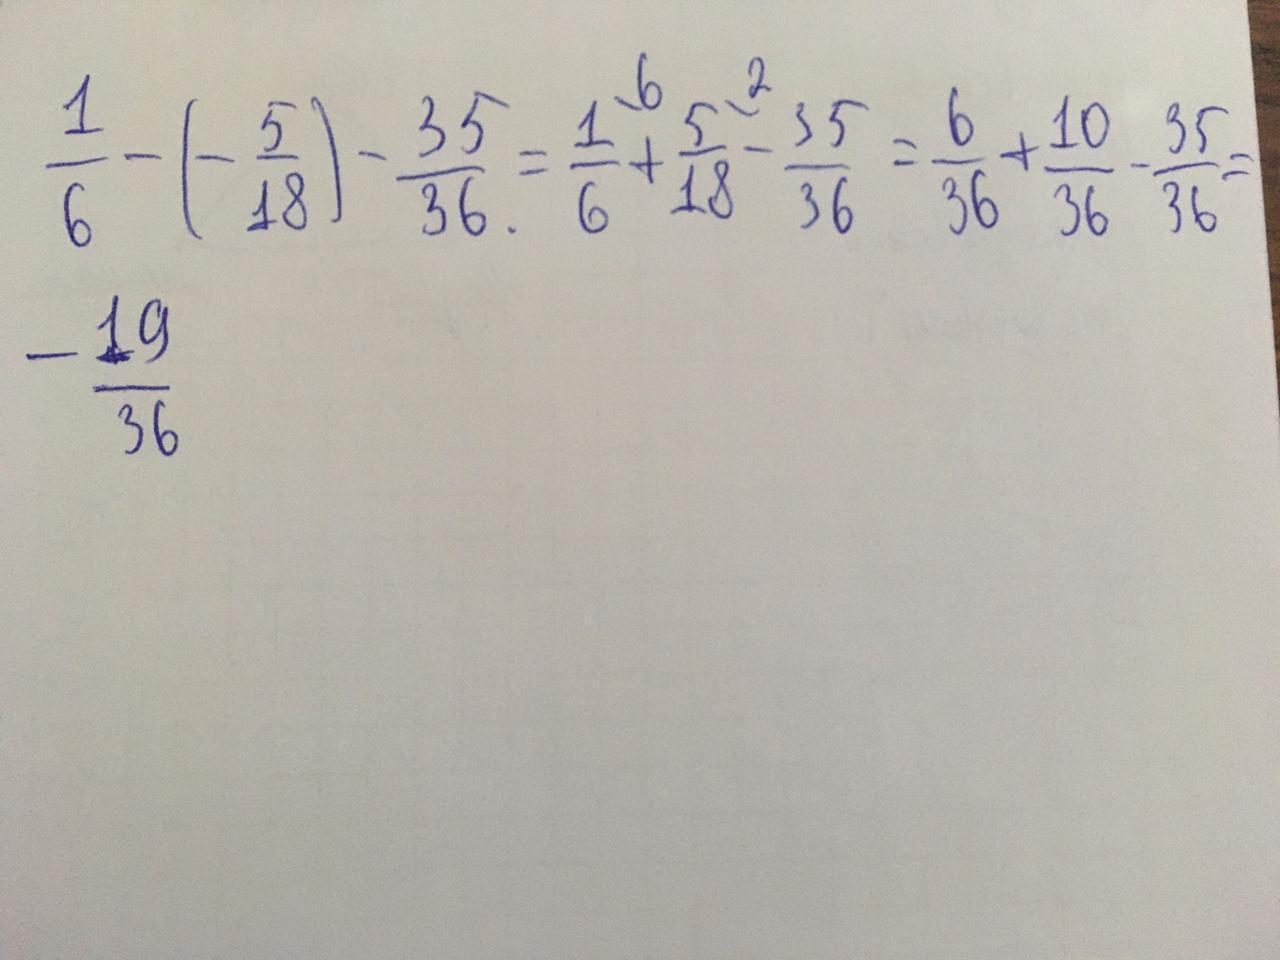 1/6 - (- 5/18) - 35/36. = 1/6 ⁶ + 5/18 ² - 35/36 = 6/36 + 10/36 - 35/36 =
- 19/36